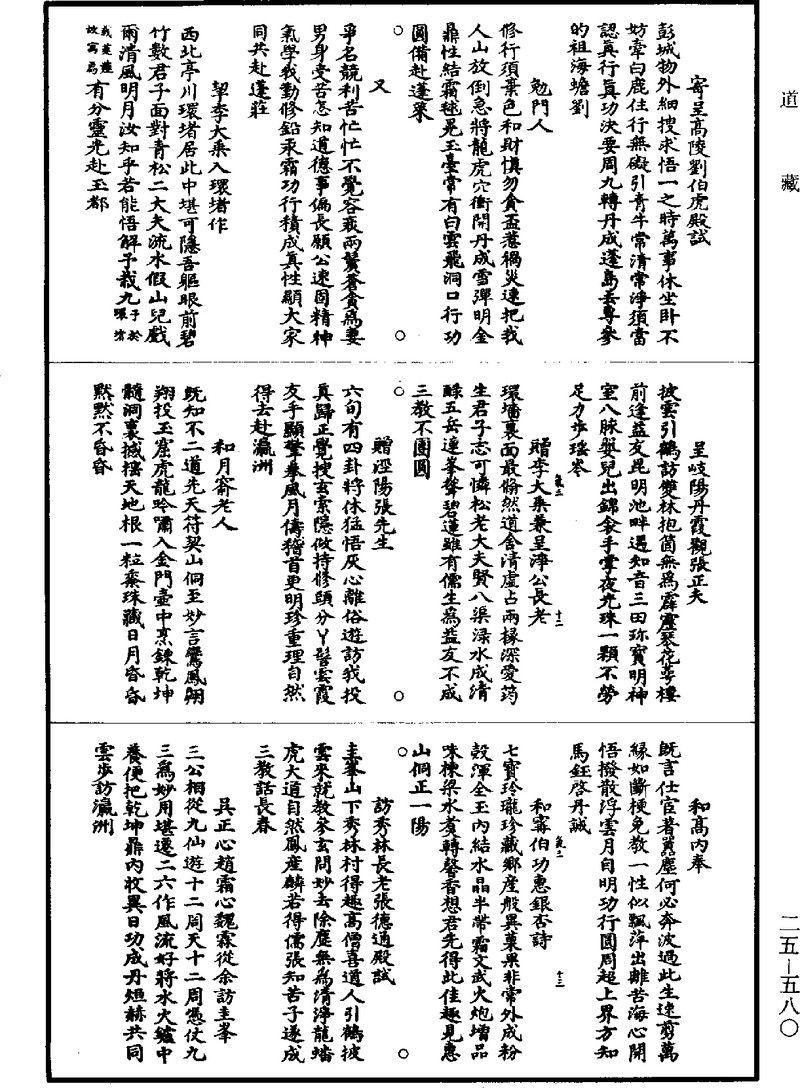 道藏
寄呈高陵劉伯虎殿試
彭城物外細搜求悟一之時萬事休坐卧不
妨牽白鹿往行無礙引青牛常清常淨須當
認真行真功決要周九轉丹成蓬島去尊參
的祖海蟾劉
勉門人
修行須棄色和財慎勿貪盃惹禍災速把我
人山放倒急將龍虎穴衝開丹成雪彈明金
鼎性結霜毬晃玉臺常有白雲飛洞口行功
圓備赴蓬萊
又
爭名競利苦忙忙不覺容衰兩鬢蒼貪為妻
男身受苦怎知道德事偏長願公速固精神
氣學我勤修鉛汞霜功行積成真性顯大家
同共赴蓬莊
挈李大乘入環堵作
西北亭川環堵居此中堪可隱吾軀眼前碧
竹數君子面對青松二大夫流水假山兒戲
爾清風明月汝知乎若能悟解予栽九予於環堵
栽蓮故寓焉有分靈光赴玉都
呈岐陽丹霞觀張正夫
披雲引鶴訪雙林抱箇無為霹靂琴花萼樓
前逢益友昆明池畔遇知音三田珎寶明神
室八脉嬰兒出錦衾手掌夜光珠一顆不勞
足力步瑤岑
贈李大乘兼呈淨公長老
環墻裏面最翛然道舍清虛占兩椽深愛筠
生君子志可憐松老大夫賢八渠渌水成清
醁五岳連峯聳碧蓮雖有儒生為益友不成
三教不團圓
十二
贈涇陽張先生
六旬有四卦將休猛悟灰心離俗遊訪我投
真歸正覺搜玄索隱做持修頭分丫髻雲霞
友手顯擎拳風月儔稽首更明珍重理自然
得去赴瀛洲
和月齋老人
既知不二道先天符契山侗至妙言鸞鳳翱
翔投玉窟虎龍吟嘯入金門壷中烹鍊乾坤
髓洞裏撼摇天地根一粒黍珠藏日月昏昏
黙黙不昏昏
和高內奉
既言仕宦著囂塵何必奔波過此生速剪萬
緣如斷梗免教一性似飄萍出離苦海心開
悟撥散浮雲月自明功行圓周超上界方知
馬鈺啓丹誠
和甯伯功惠銀杏詩
七寳玲瓏珍藏鄉產般異菓果非常外成粉
殼渾全玉內結水晶半帶霜文武火炮増品
味棟梁水煑轉馨香想君先得此佳趣見惠
山侗正一陽
十三
訪秀林長老張德通殿試
圭峯山下秀林村得趣高僧喜道人引鶴披
雲來就教參玄問妙去除塵無為清淨龍蟠
虎大道自然鳳產麟若得儒張知苦子遂成
三教話長春
吳正心趙霜心魏霖從余訪圭峯
三公相從九仙遊十二周天十二周憑仗九
三為妙用堪還二六作風流好將水火爐中
養便把乾坤鼎內收異日功成丹烜赫共同
雲步訪瀛洲
二五－五八〇